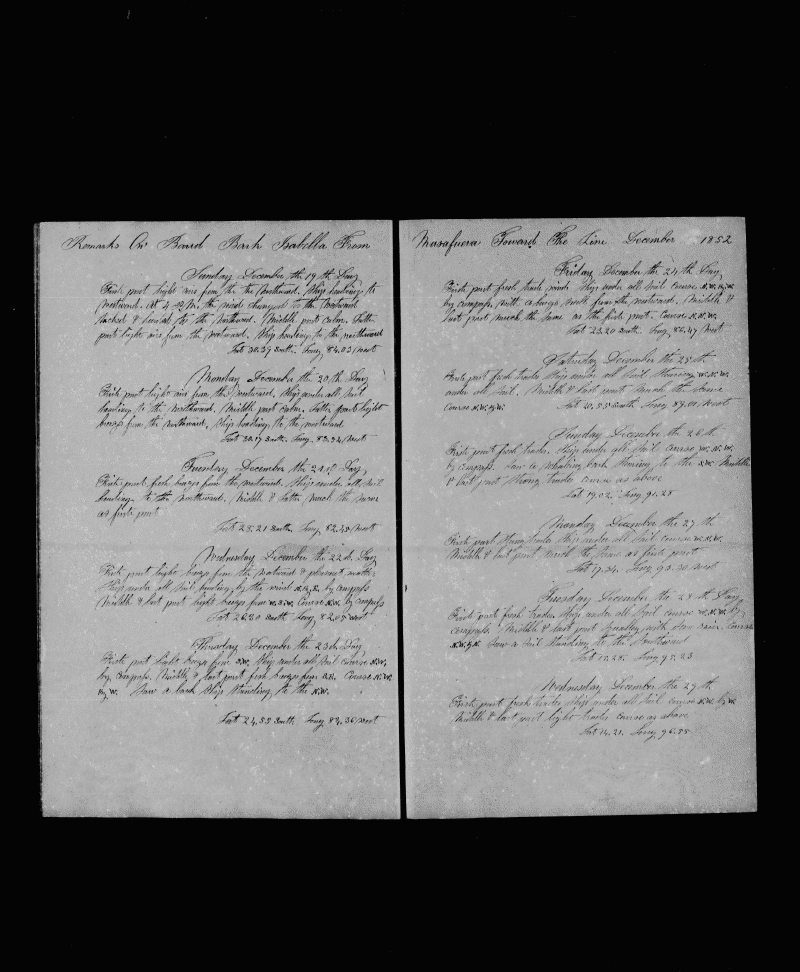 Remarks On Board Bark Isabella From
Sunday December the 19th Day
First part light airs from the the Northward. Ship heading to
Westward. At 4 P.M. the wind changed to the Westward
tacked & headed to the Northward. Middle part calm. Latter
part light airs from the Westward. Ship heading to the northward
Lat 30.39 South Long 84.03 West
Monday December the 20th Day
First part light airs from the Westward. Ship under all sail
heading to the Northward. Middle part calm. Latter part light
breeze from the Northward. Ship heading to the westward
Lat 30.17 South Long 83.34 West
Tuesday December the 21st Day
First part fresh breeze from the westward. Ship under all sail
heading to the Northward. Middle & latter much the same
as first part
Lat 28.21 South Long 82.40 West
Wednesday December the 22d Day
First part light breeze from the Westward & pleasant weather
Ship under all sail heading by the wind N.N.E. by compass
Middle & last part light breeze from W.S.W. Course N.W. by compass
Lat 26.20 South Long 82.05 West
Thursday December the 23d Day
First part light breeze from S.W. Ship under all sail course N.W.
by compass. Middle & last part fresh breeze from S.E. Course N.W.
by W. Saw a bark Ship standing to the N.W.
Lat 24.55 South Long 84.36 West
Masafuera Toward The Line December 1852
Friday December the 24th Day
First part fresh trade winds Ship under all sail course N.W. by W.
by compass with a heavy swell from the westward. Middle &
last part much the same as the first part. Course N.W.W.
Lat 23.20 South Long 86.47 West
Saturday December the 25th
First part fresh trades Ship under all sail Steering W.N.W.
under all sail. Middle & last part much the same
Course N.W. by W.
Lat 20.55 South Long 89.01 West
Sunday December the 26th
First part fresh trades Ship under all sail course W.N.W.
by compass. Saw a whaling bark Steering to the S.W. Middle
& last part strong trades course as above
Lat 19.02 Long 91.28
Monday December the 27th
First part strong trades Ship under all sail course W.N.W.
Middle & last part much the same as first part
Lat 17.34 Long 93.30 West
Tuesday December the 28th Day
First part fresh trades Ship under all sail course W.N.W. by
compass. Middle & last part squally with some rain. Course
N.W. by W. Saw a sail standing to the Southward
Lat 15.28 Long 95.23
Wednesday December the 29th
First part fresh trades Ship under all sail course N.W. by W.
Middle & last part light trades course as above
Lat 14.21 Long 96.55